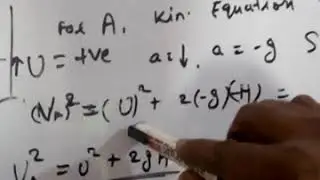 For A, Kin. Equation
↑U = +ve a↓, a = -g S
(V_A)² = (U)² + 2(-g)(-H) =
V_A² = U² + 2gH